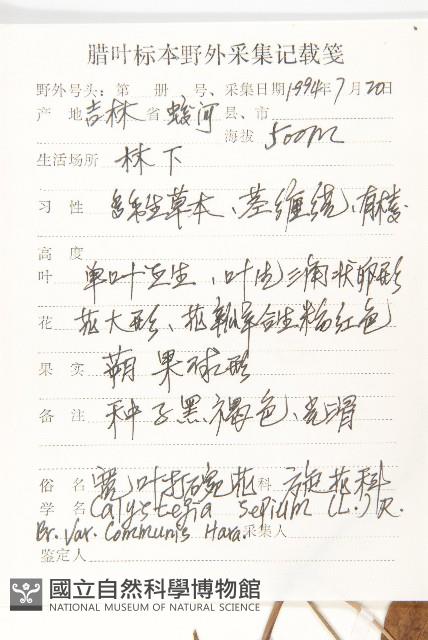 腊叶标本野外采集记载笺
野外号头：第 册 号、采集日期1994年7月20日
产 地 吉林 省 蛟河 县、市
海拔 500m
生活场所 林下
习 性 多年生草本、茎缠绕、有棱
高 度
叶 单叶互生、叶片三角状卵形
花 花大形、花瓣合生粉红色
果 实 蒴果球形
备 注 种子黑褐色、光滑
俗 名 宽叶打碗花 科 旋花科
学 名 Calystegia sepium (L.) R.
Br. Var. Communis Hara. 采集人
鉴定人
國立自然科學博物館
NATIONAL MUSEUM OF NATURAL SCIENCE